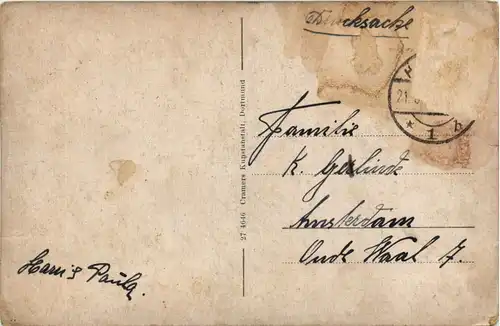 Drucksache
21.
* 1 b
Familie
K. Gerlinde
Amsterdam
Oude Waal 7.
27 4646 Cramers Kunstanstalt, Dortmund
Harri & Paula.